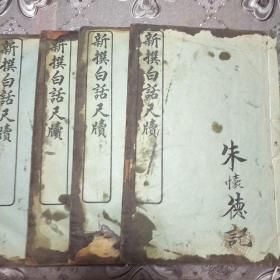 新撰白話尺牘
新撰白話尺牘
新撰白話尺牘
新撰白話尺牘
朱懷德記